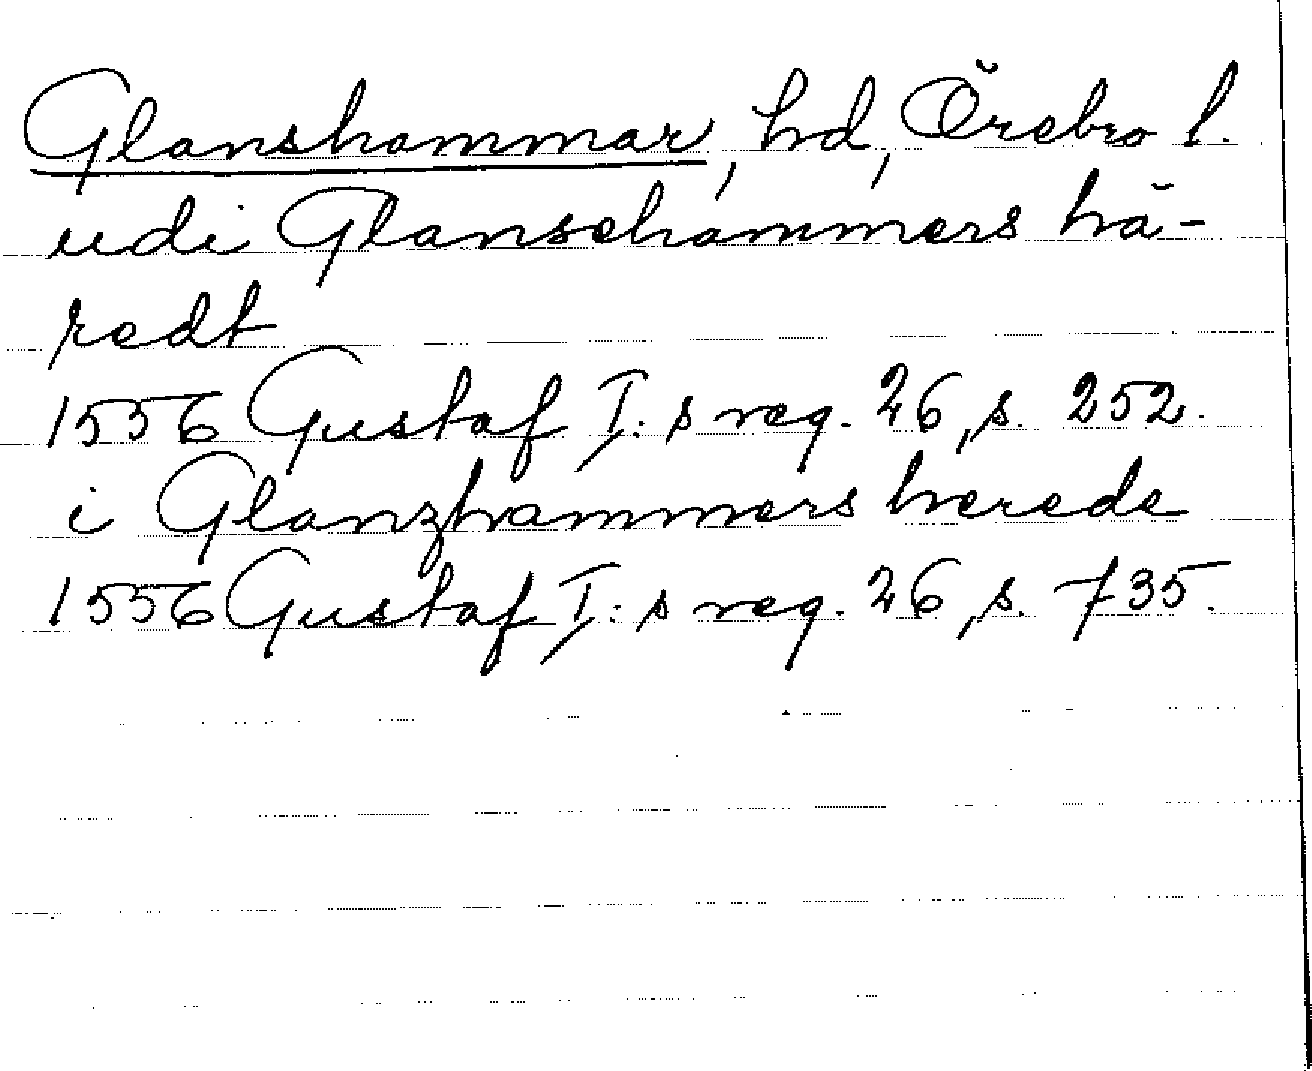 Glanshammar, hd, Örebro l.
udi Glansehammers hä-
redt
1556 Gustaf I:s reg. 26, s. 252.
i Glanzhammers herede
1556 Gustaf I:s reg. 26, s. 735.